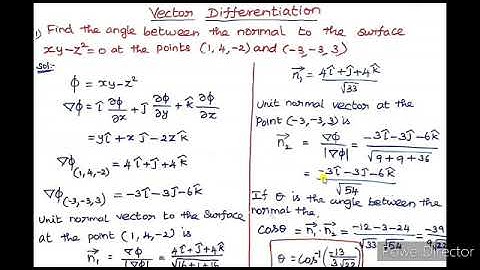 Vector Differentiation
1) Find the angle between the normal to the surface
xy-z²=0 at the points (1,4,-2) and (-3,-3,3)
Sol:-
ϕ = xy-z²
∇ϕ = î ∂ϕ/∂x + ĵ ∂ϕ/∂y + k̂ ∂ϕ/∂z
= yî + xĵ - 2zk̂
∇ϕ(1,4,-2) = 4î + ĵ + 4k̂
∇ϕ(-3,-3,3) = -3î - 3ĵ - 6k̂
Unit normal vector to the surface
at the point (1,4,-2) is
n₁ = ∇ϕ/|∇ϕ| = 4î+ĵ+4k̂/√16+1+16
n₁ = 4î+ĵ+4k̂/√33
Unit normal vector at the
Point (-3,-3,3) is
n₂ = ∇ϕ/|∇ϕ| = -3î-3ĵ-6k̂/√9+9+36
= -3î-3ĵ-6k̂/√54
If θ is the angle between the
normal the,
cosθ = n₁·n₂ = -12-3-24/√33 √54 = -39/
θ = cos⁻¹(-13/3√22)